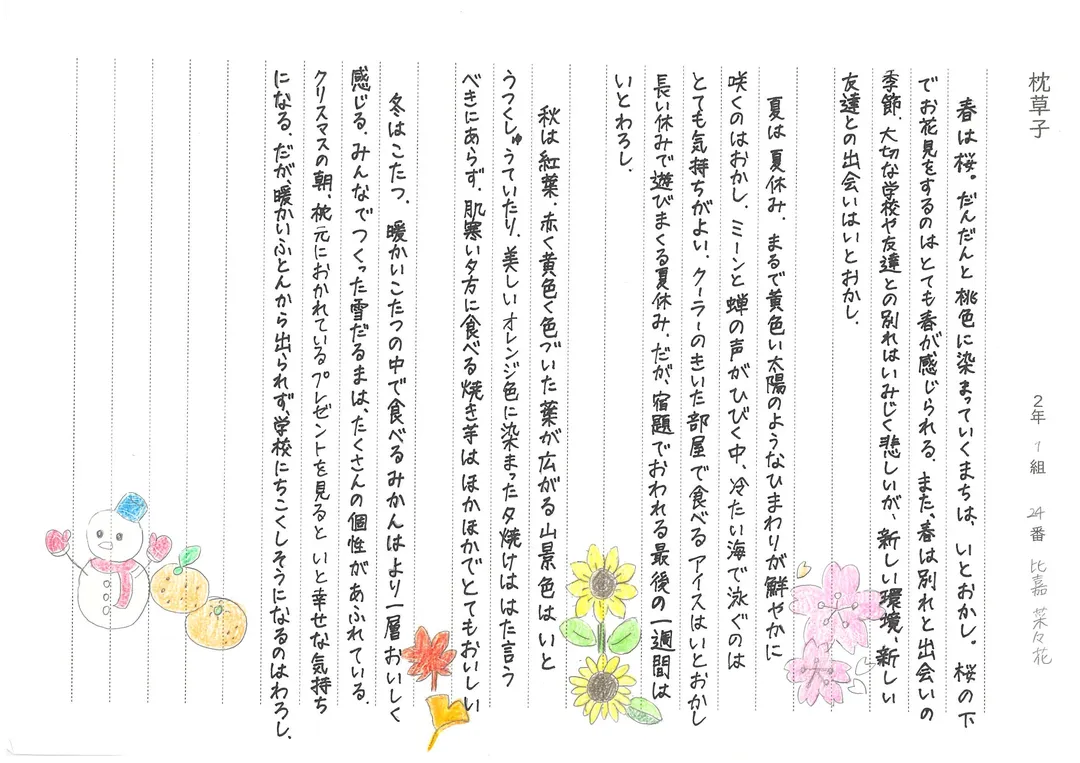 枕草子
2年 1組 24番 比嘉 菜々花
春は桜。だんだんと桃色に染まっていくまちは、いとおかし。桜の下
でお花見をするのはとても春が感じられる。また、春は別れと出会いの
季節。大切な学校や友達との別れはいみじく悲しいが、新しい環境、新しい
友達との出会いはいとおかし。
夏は夏休み。まるで黄色い太陽のようなひまわりが鮮やかに
咲くのはおかし。ミーンと蝉の声がひびく中、冷たい海で泳ぐのは
とても気持ちがよい。クーラーのきいた部屋で食べるアイスはいとおかし
長い休みで遊びまくる夏休み。だが、宿題でおわれる最後の一週間は
いとわろし。
秋は紅葉。赤く黄色く色づいた葉が広がる山景色はいと
うつくしゅうていたり。美しいオレンジ色に染まった夕焼けははた言う
べきにあらず。肌寒い夕方に食べる焼き芋はほかほかでとてもおいしい
冬はこたつ。暖かいこたつの中で食べるみかんはより一層おいしく
感じる。みんなでつくった雪だるまは、たくさんの個性があふれている。
クリスマスの朝、枕元におかれているプレゼントを見るといと幸せな気持ち
になる。だが、暖かいふとんから出られず、学校にちこくしそうになるのはわろし。